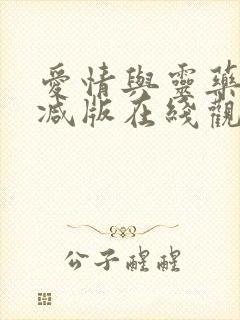 愛情與靈藥
減版在綫觀
公子醒醒